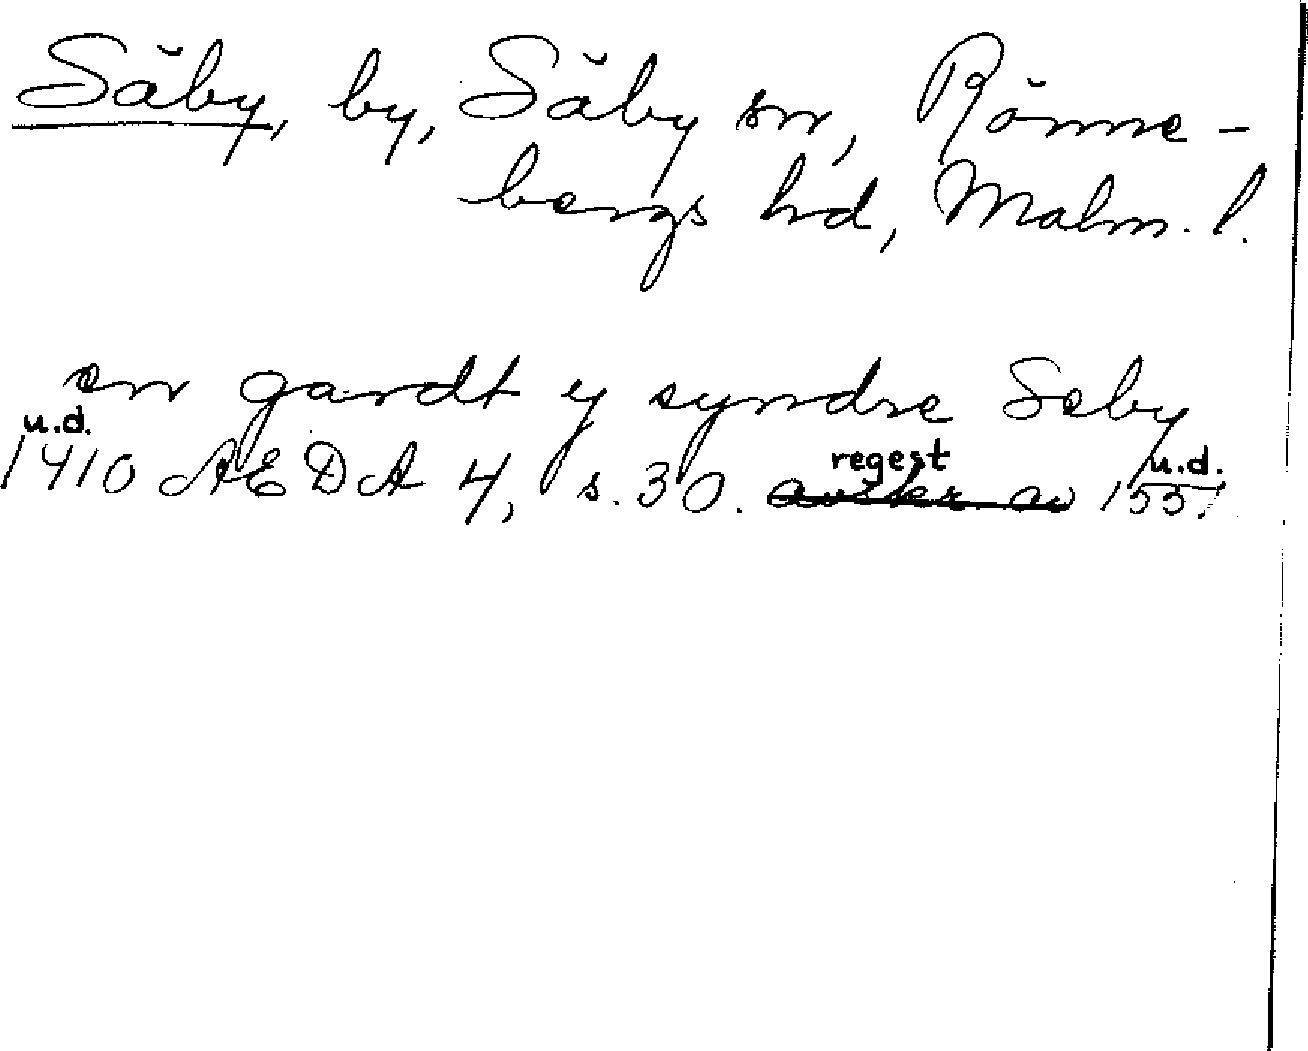 Säby, by, Säby sn, Rönne-
bergs hd, Malm. l.
en gardt y syndre Seby
u.d.
1410 AEDA 4, s. 30. regest u.d. 1551